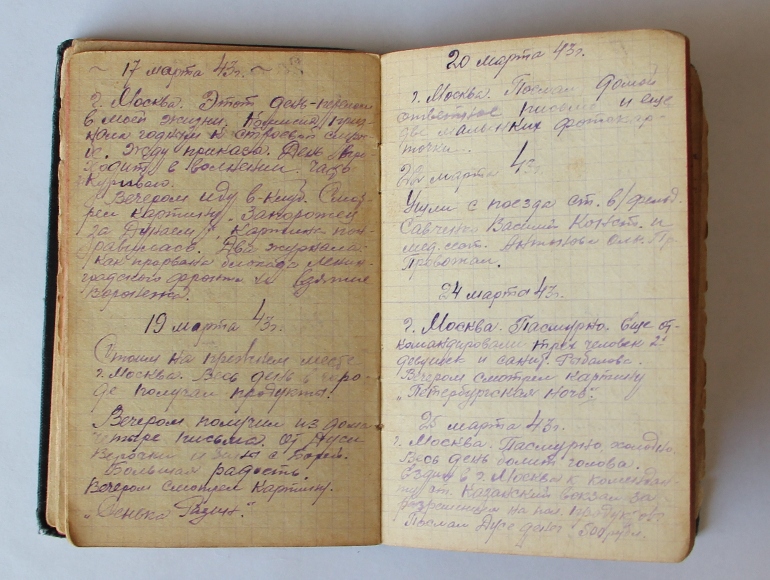 17 марта 43 г.
г. Москва. Этот день-перелом
в моей жизни. Комиссия приз-
нала годным к строевой служ-
бе. Жду приказа. День про-
ходит в волнении. Часто
курываю.
Вечером иду в клуб. Смот-
рел картину „Запорожец
за Дунаем". Картина пон-
равилась. Два журнала:
Как прорвана блокада Ленин-
градского фронта и взятие
Воронежа.
19 марта 43 г.
Стоим на прежнем месте
г. Москва. Весь день в горо-
де получал продукты.
Вечером получил из дома
четыре письма. От Дуси
Верочки и Зины с Борей.
Большая радость.
Вечером смотрел картину.
„Стенька Разин".
20 марта 43 г.
г. Москва. Послал домой
ответное письмо и еще
две маленьких фотокар-
точки.
22 марта 43 г.
Ушли с поезда ст. в/фельд.
Савченко Василий Конст. и
мед. сест. Антонова
Провожал.
24 марта 43 г.
г. Москва. Пасмурно. Еще от-
командировали трех человек 2х
девушек и санит. Рыбалова.
Вечером смотрел картину
„Петербургская ночь".
25 марта 43 г.
г. Москва. Пасмурно, холодно.
Весь день болит голова.
Ездил в г. Москва к комендан-
ту ст. Казанский вокзал за
разрешением на пол. продуктов.
Послал Дусе денег 500 рубл.